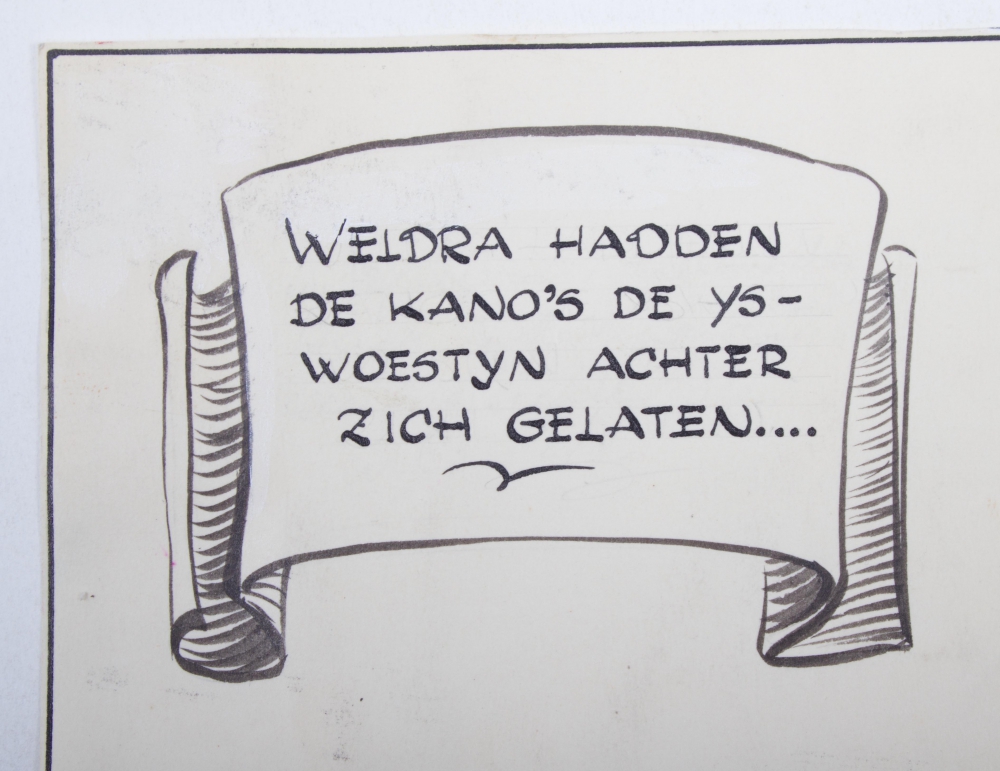 WELDRA HADDEN
DE KANO'S DE YS-
WOESTYN ACHTER
ZICH GELATEN....